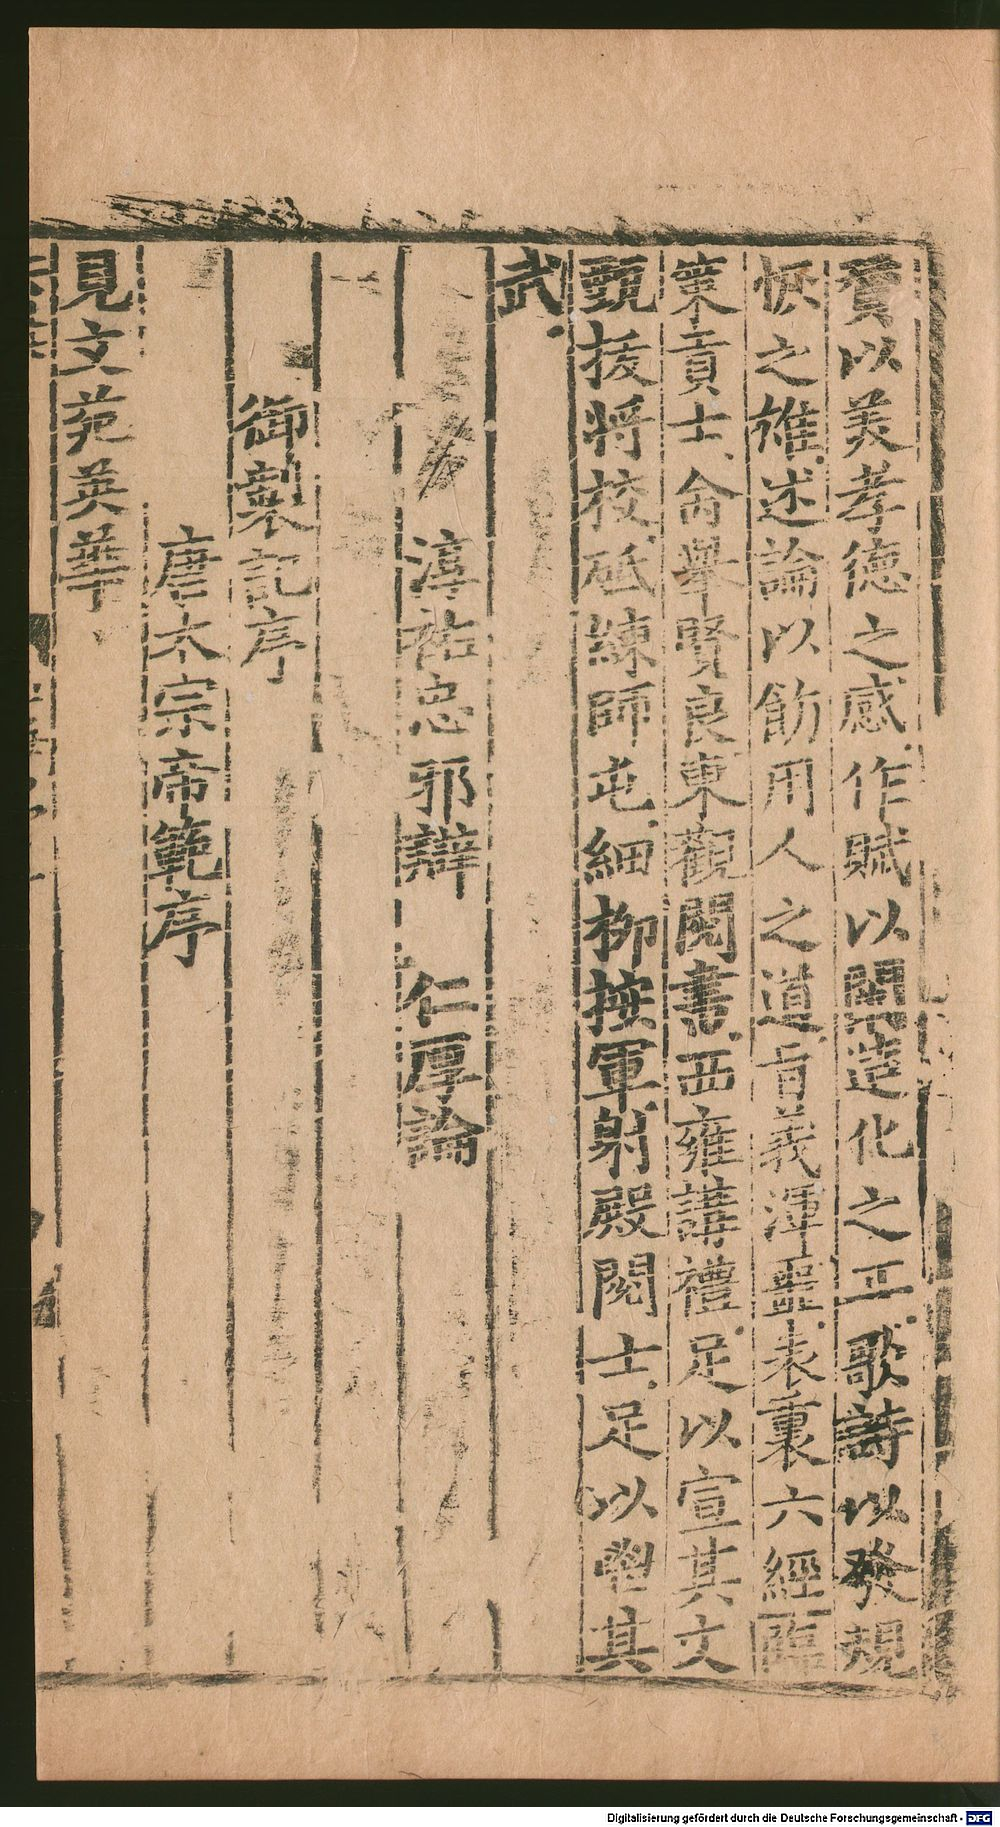 賚以美孝德之感作賦以闡造化之工歌詩以發規
恢之雄述論以飭用人之道旨義渾噩表裏六經臨
策貢士俞舉賢良東觀閱書西雍講禮足以宣其文
甄拔將校砥練師屯細柳按軍射殿閱士足以奮其
武
淳祐忠邪辯 仁厚論
御製記序
唐太宗帝範序
見文苑英華
Digitalisierung gefördert durch die Deutsche Forschungsgemeinschaft - DFG